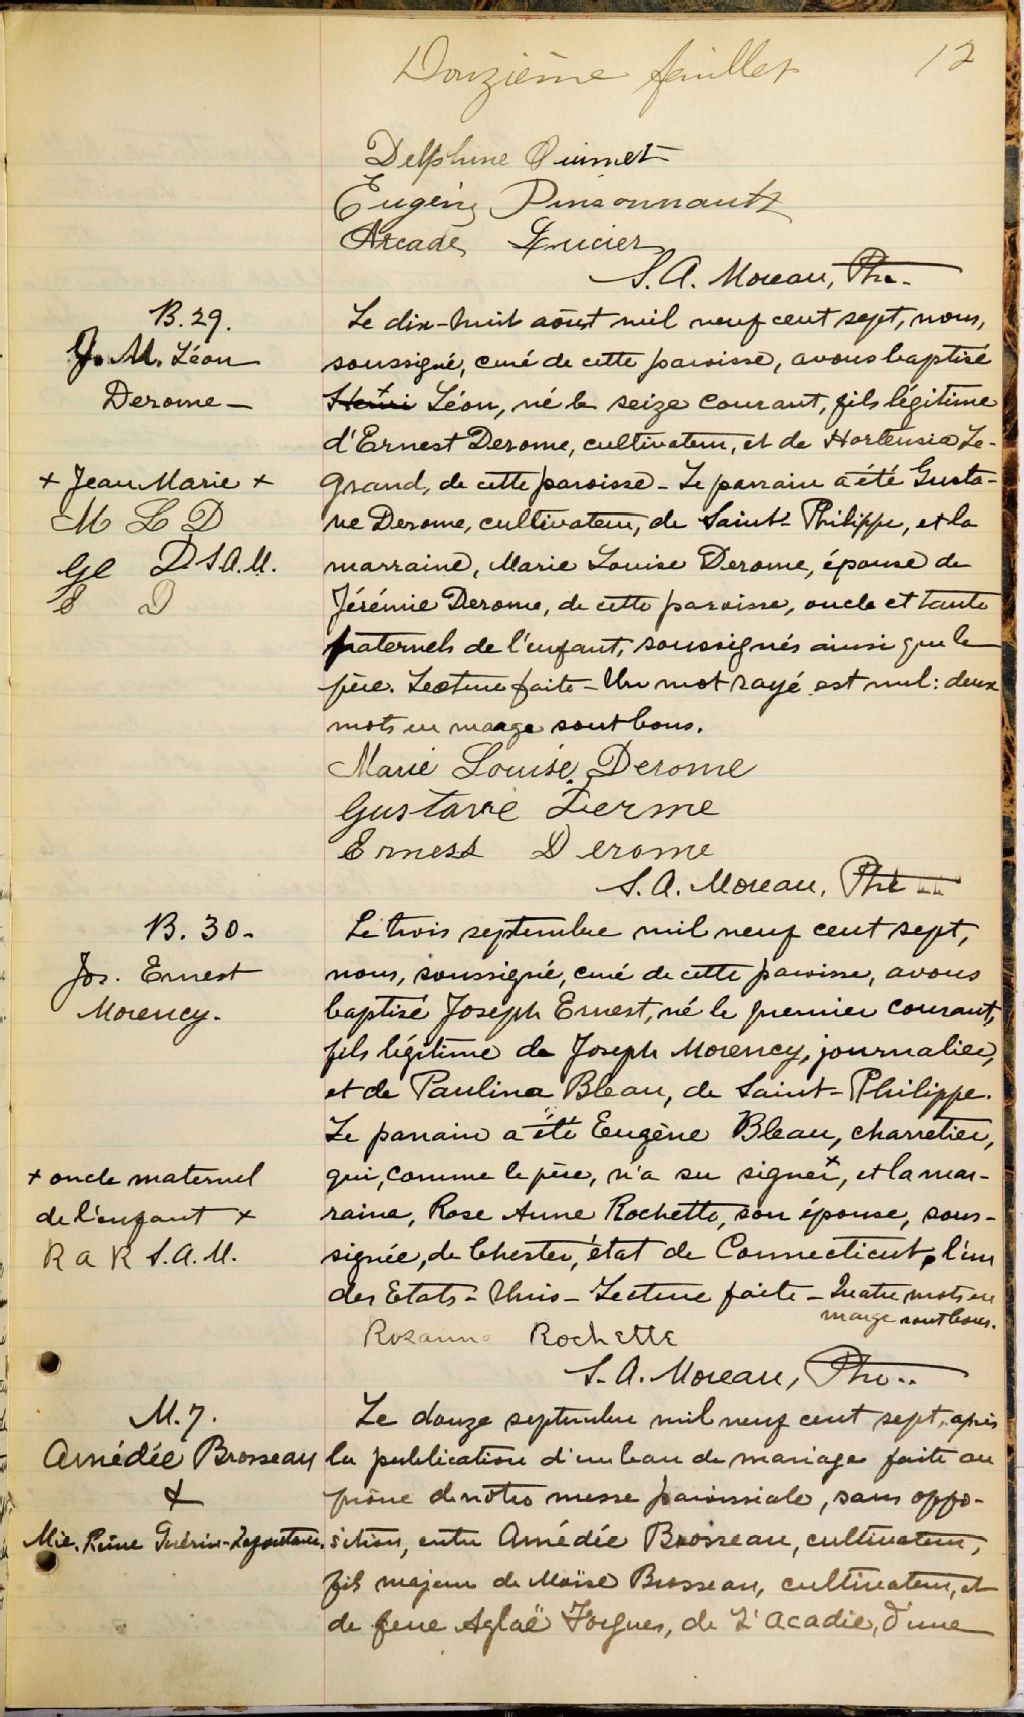 Douzième feuillet 12
Delphine Ouimet
Eugène Pinsonnault
Arcade Lucier
S. A. Moreau, Ptre.
B. 29.
J. M. Léon
Derome
+ Jean Marie +
M L D
G D S.A.M.
E D
Le dix-huit août mil neuf cent sept, nous,
soussigné, curé de cette paroisse, avons baptisé
Henri + Léon, né le seize courant, fils légitime
d'Ernest Derome, cultivateur, et de Hortensia Le-
grand, de cette paroisse - Le parrain a été Gusta-
ve Derome, cultivateur, de Saint-Philippe, et la
marraine, Marie Louise Derome, épouse de
Jérémie Derome, de cette paroisse, oncle et tante
paternels de l'enfant, soussignés ainsi que le
père. Lecture faite - Un mot rayé est nul: deux
mots en marge sont bons.
Marie Louise Derome
Gustave Derme
Ernest Derome
S. A. Moreau, Ptre
B. 30.
Jos. Ernest
Morency.
+ oncle maternel
de l'enfant +
R a R S.A.M.
Le trois septembre mil neuf cent sept,
nous, soussigné, curé de cette paroisse, avons
baptisé Joseph Ernest, né le premier courant,
fils légitime de Joseph Morency, journalier,
et de Paulina Bleau, de Saint-Philippe.
Le parrain a été Eugène Bleau, charretier,
qui, comme le père, n'a su signer +, et la mar-
raine, Rose Anne Rochette, son épouse, sous-
signée, de Chester, état de Connecticut, l'un
des Etats-Unis - Lecture faite - Quatre mots en
marge sont bons.
Rosanna Rochette
S. A. Moreau, Ptre.
M. 7.
Amédée Brosseau
&
Mie. Reine Guérin-Lafontaine.
Le douze septembre mil neuf cent sept, après
la publication d'un ban de mariage faite au
prône de notre messe paroissiale, sans oppo-
sition, entre Amédée Brosseau, cultivateur,
fils majeur de Moïse Brosseau, cultivateur, et
de feue Aglaë Forgues, de L'Acadie, d'une